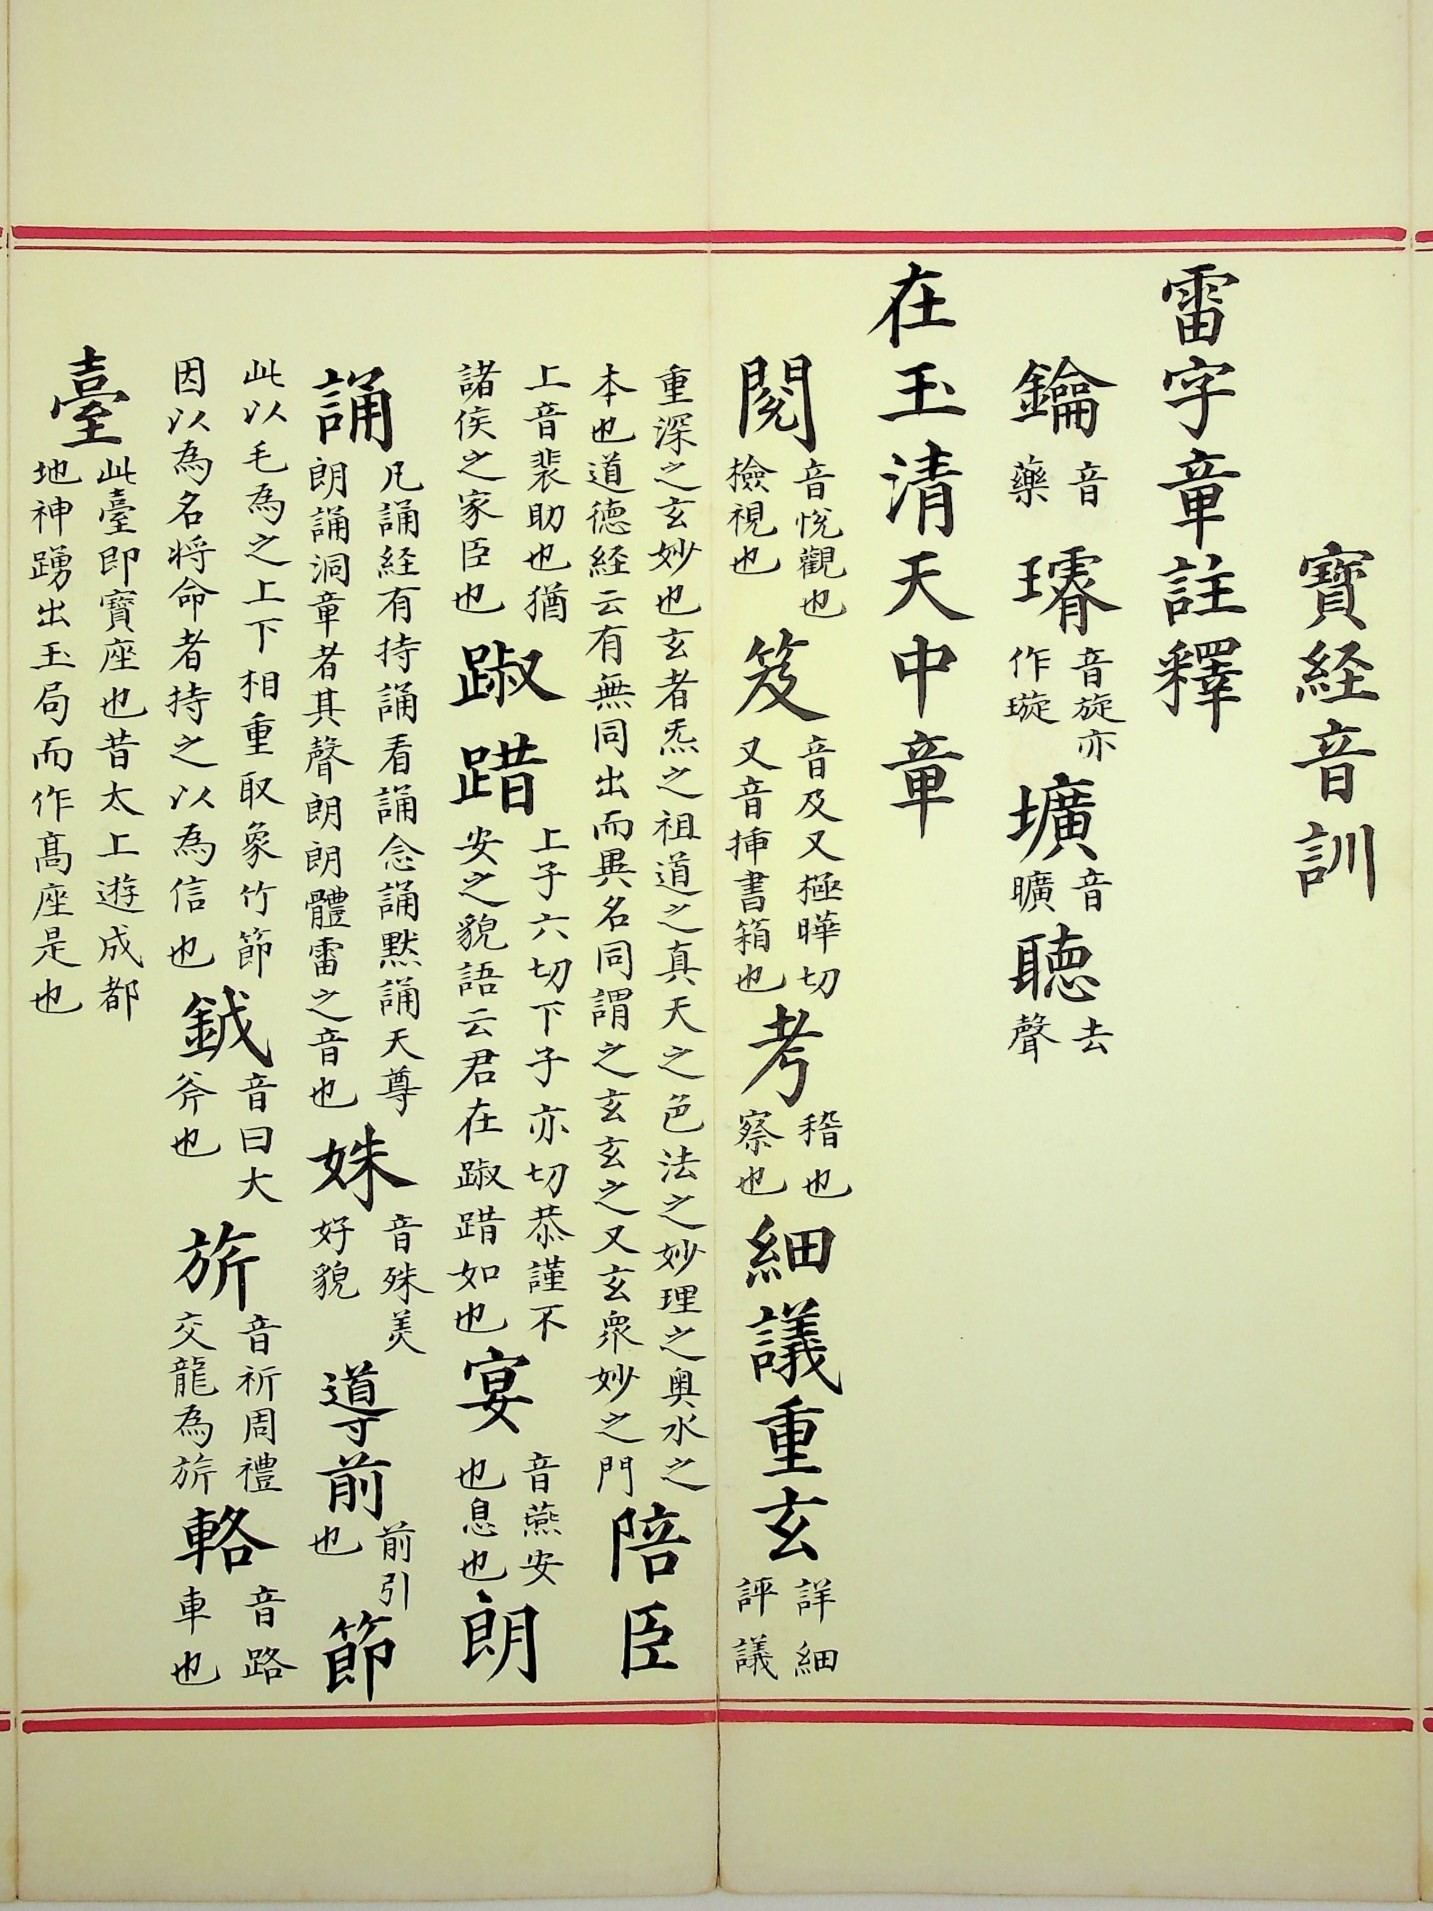 寶経音訓
雷字章註釋
鑰音藥 璿音旋亦作璇 壙音曠 聽去聲
在玉清天中章
閱音悅觀也檢視也 笈音及又極曄切又音揷書箱也 考稽也察也 細議重玄詳細評議
重深之玄妙也玄者炁之祖道之真天之色法之妙理之奥水之
本也道德経云有無同出而異名同謂之玄玄之又玄衆妙之門 陪臣
上音裴助也猶諸侯之家臣也 踧踖上子六切下子亦切恭謹不安之貌語云君在踧踖如也 宴音燕安也息也 朗
誦凡誦経有持誦看誦念誦默誦天尊朗誦洞章者其聲朗朗體雷之音也 姝音殊美好貌 導前前引也 節
此以毛為之上下相重取象竹節因以為名将命者持之以為信也 鉞音曰大斧也 旂音祈周禮交龍為旂 輅音路車也
臺此臺即寶座也昔太上遊成都地神踴出玉局而作髙座是也